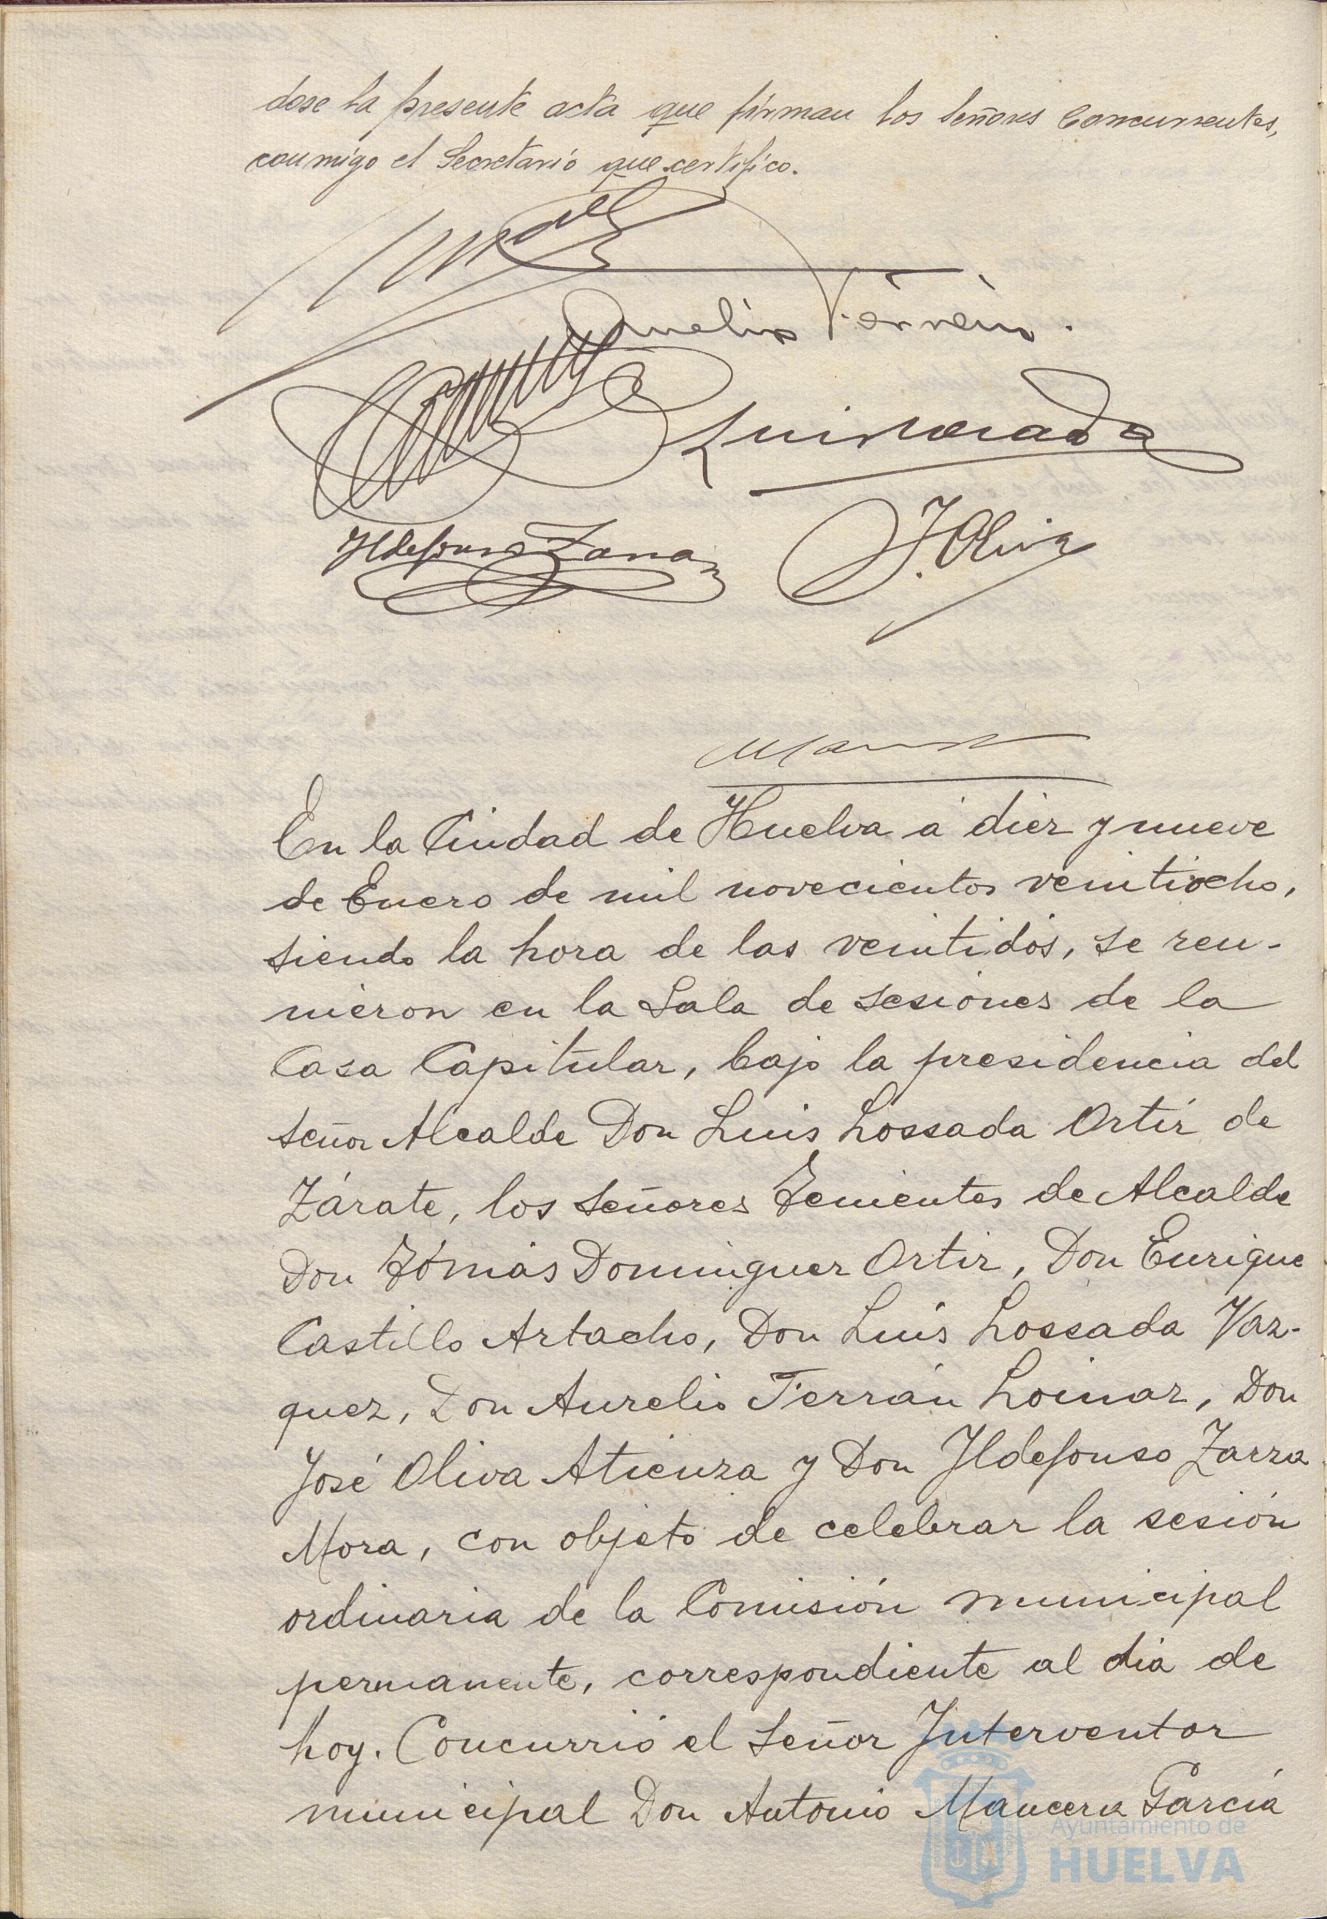 dose la presente acta que firman los Señores Concurrentes,
conmigo el Secretario que certifico.
Aurelio Terrén
Luis Losada
Ildefonso Zarra
J. Oliva
En la Ciudad de Huelva á diez y nueve
de Enero de mil novecientos veintiocho,
siendo la hora de las veintidós, se reu-
nieron en la Sala de sesiones de la
Casa Capitular, bajo la presidencia del
señor Alcalde Don Luis Lossada Ortiz de
Zárate, los señores Tenientes de Alcalde
Don Tomás Dominguez Ortiz, Don Enrique
Castillo Artacho, Don Luis Lossada Vaz-
quez, Don Aurelio Terrán Loinaz, Don
José Oliva Atienza y Don Ildefonso Zarza
Mora, con objeto de celebrar la sesión
ordinaria de la Comisión municipal
permanente, correspondiente al dia de
hoy. Concurrió el señor Interventor
municipal Don Antonio Mancera García
Ayuntamiento de
HUELVA